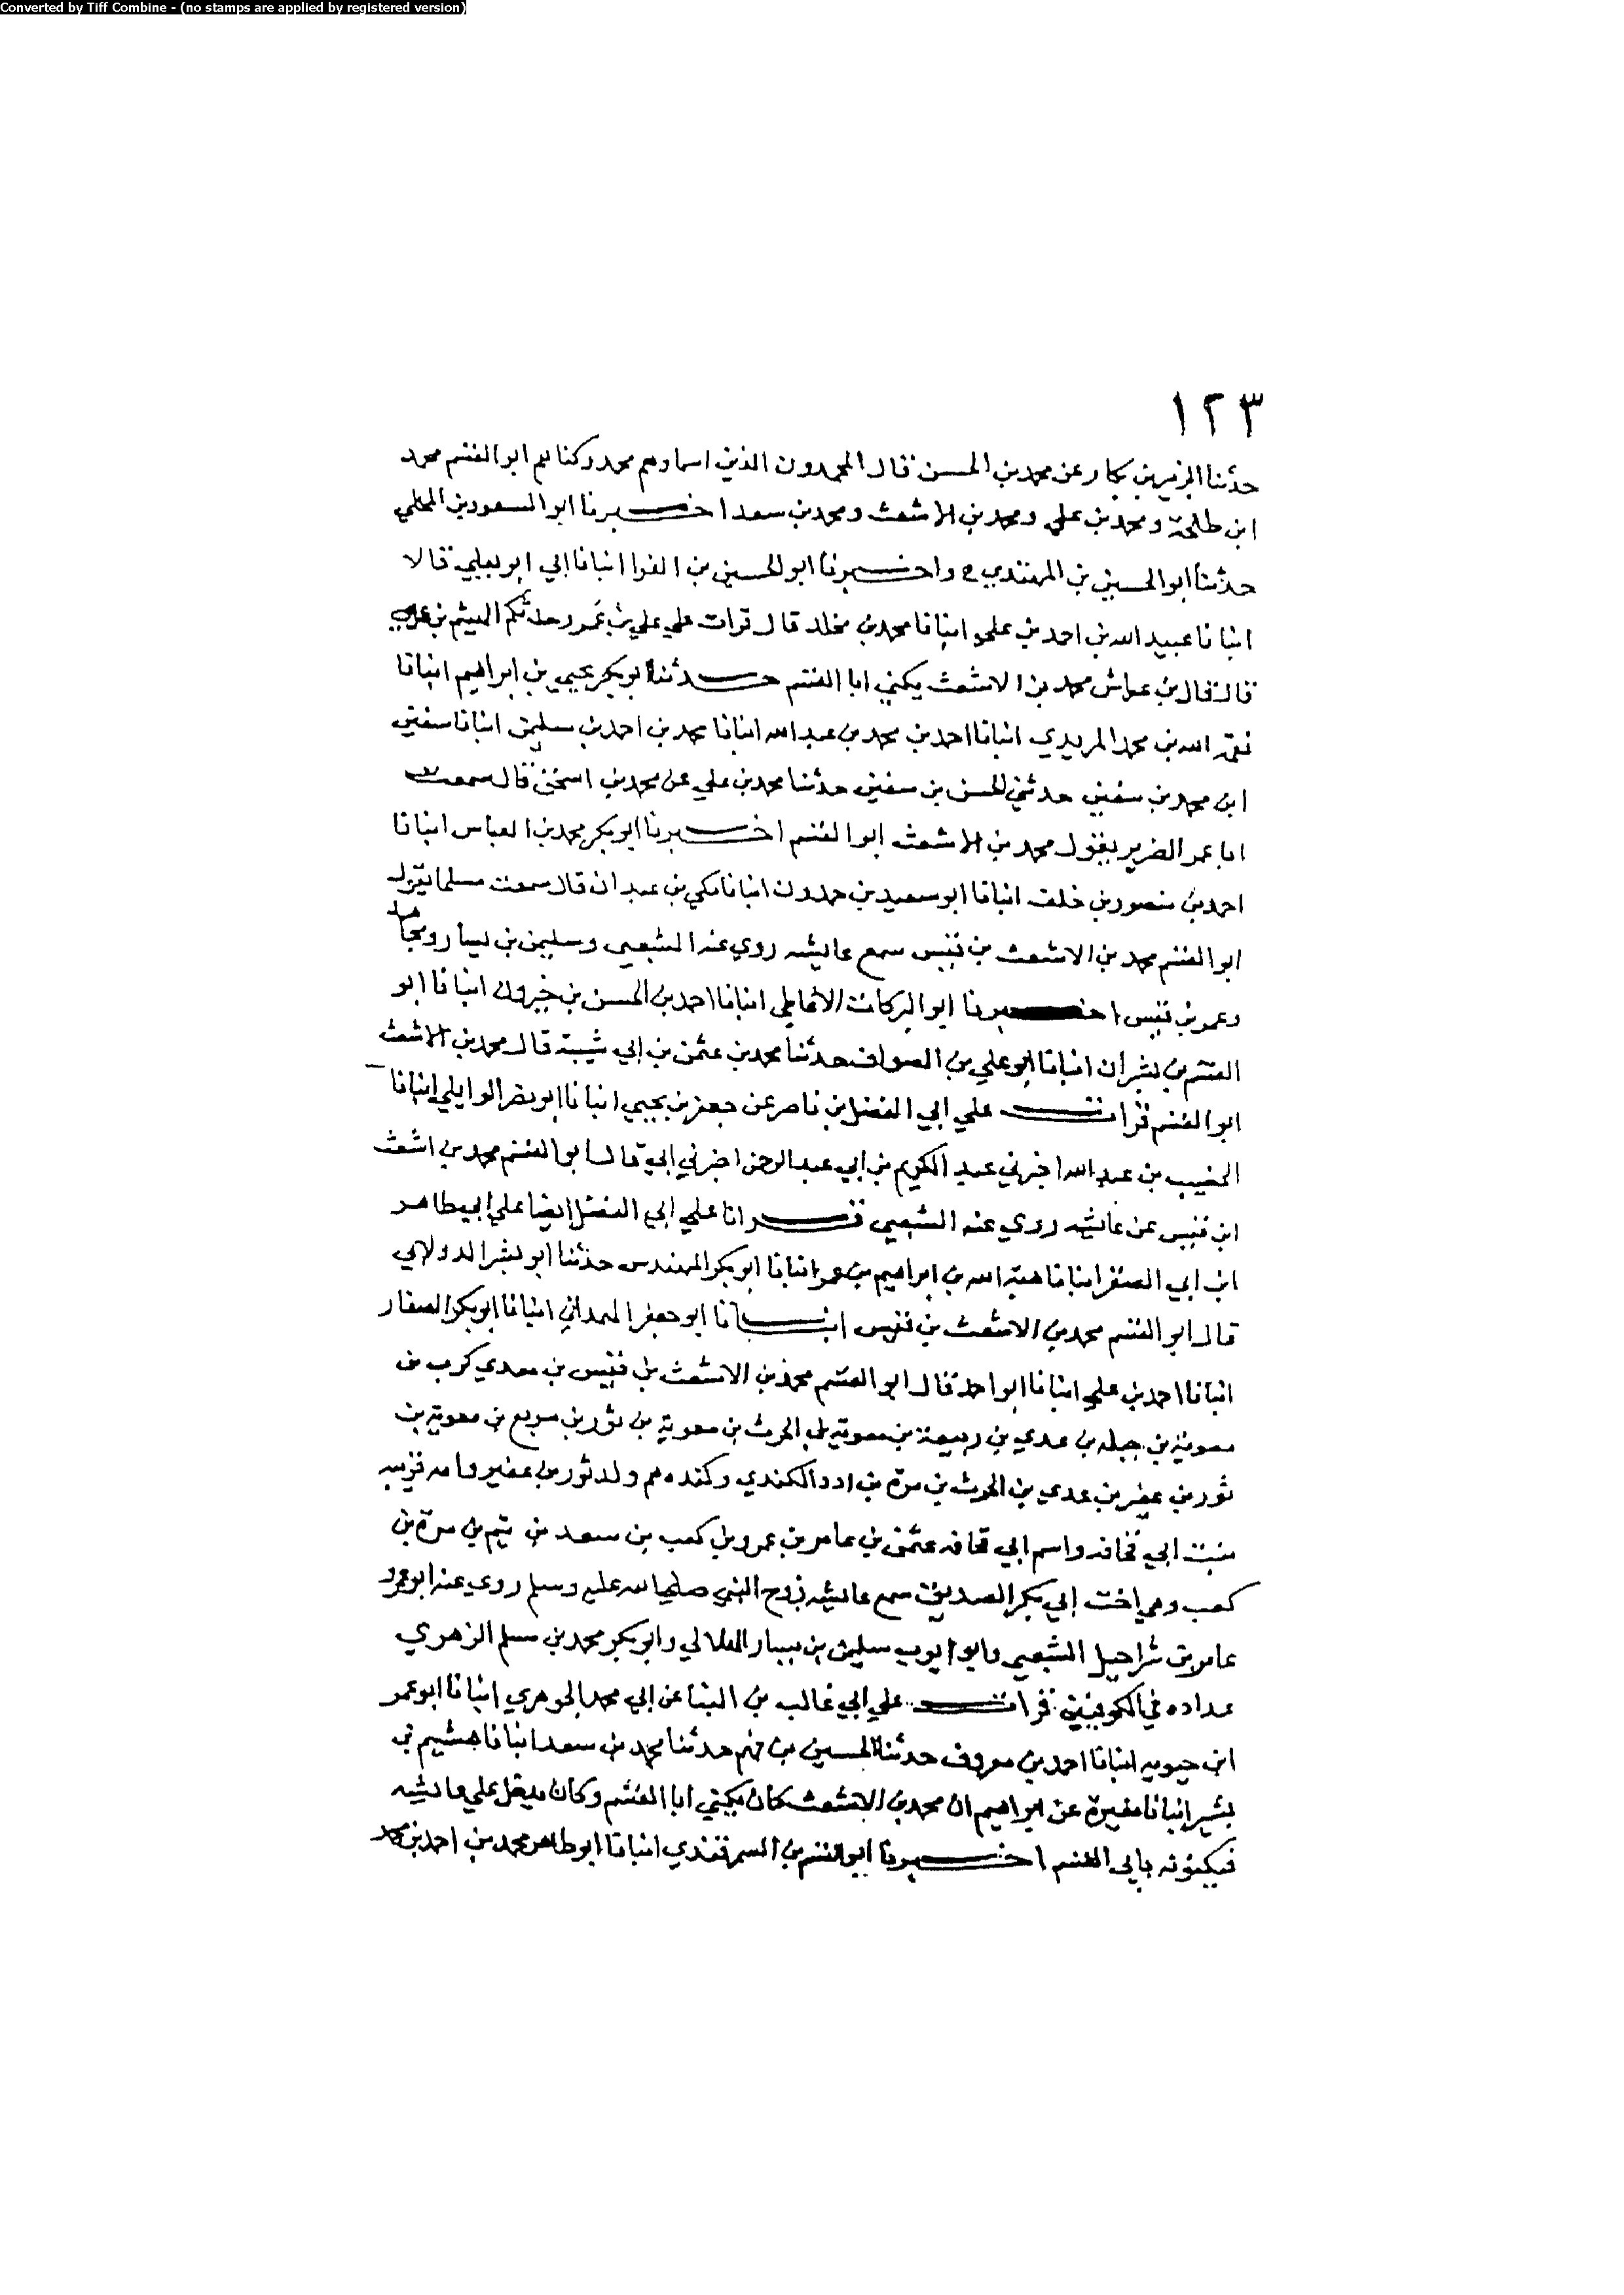 Converted by Tiff Combine - (no stamps are applied by registered version)
١٢٣
حدثنا الزبير بن بكار عن محمد بن الحسن قال المحمدون الذين اسماوهم محمد وكناهم ابو القسم محمد
ابن طلحة ومحمد بن علي ومحمد بن الاشعث ومحمد بن سعد اخبرنا ابو السعود بن المجلي
حدثنا ابو الحسين بن المهتدي ح واخبرنا ابو الحسين بن الفرا انبانا ابي ابو يعلي قالا
انبانا عبيد الله بن احمد بن علي انبانا محمد بن مخلد قال قرات علي علي بن عمرو حدثكم الهيثم بن عدي
قال قال بن عياش محمد بن الاشعث يكني ابا القسم حدثنا ابو بكر يحيي بن ابراهيم انبانا
نعمة الله بن محمد المرندي انبانا احمد بن محمد بن عبد الله انبانا محمد بن احمد بن سليمن انبانا سفين
ابن محمد بن سفين حدثني الحسن بن سفين حدثنا محمد بن علي عن محمد بن اسحق قال سمعت
ابا عمر الضرير يقول محمد بن الاشعث ابو القسم اخبرنا ابو بكر محمد بن العباس انبانا
احمد بن منصور بن خلف انبانا ابو سعيد بن حمدون انبانا مكي بن عبدان قال سمعت مسلما يقول
ابو القسم محمد بن الاشعث بن قيس سمع عايشه روي عنه الشعبي وسليمن بن يسار ومجاهد
وعمر بن قيس اخبرنا ابو البركات الانماطي انبانا احمد بن الحسن بن خيرون انبانا ابو
القسم بن بشران انبانا ابو علي بن الصواف حدثنا محمد بن عثمن بن ابي شيبة قال محمد بن الاشعث
ابو القسم قرات علي ابي الفضل بن ناصر عن جعفر بن يحيي انبانا ابو نصر الوايلي انبانا
الخصيب بن عبد الله اخبرني عبد الكريم بن ابي عبد الرحمن اخبرني ابي قال ابو القسم محمد بن اشعث
ابن قيس عن عايشه روي عنه الشعبي قرانا علي ابي الفضل ايضا علي ابي طاهر
ابن ابي الصقر انبانا هبة الله بن ابراهيم بن عمر انبانا ابو بكر المهندس حدثنا ابو بشر الدولابي
قال ابو القسم محمد بن الاشعث بن قيس انبانا ابو جعفر الهمداني انبانا ابو بكر الصفار
انبانا احمد بن علي انبانا ابو احمد قال ابو القسم محمد بن الاشعث بن قيس بن معدي كرب بن
معوية بن جبله بن عدي بن ربيعة بن معوية بن الحرث بن معوية بن ثور بن مرتع بن معوية بن
ثور بن عفير بن عدي بن الحرث بن مرة بن ادد الكندي وكنده هم ولد ثور بن عفير وامه قريبه
بنت ابي قحافه واسم ابي قحافه عثمن بن عامر بن عمرو بن كعب بن سعد بن تيم بن مرة بن
كعب وهي اخت ابي بكر الصديق سمع عايشه زوج النبي صلي الله عليه وسلم روي عنه ابو عمرو
عامر بن شراحيل الشعبي وابو ايوب سليمن بن يسار الهلالي وابو بكر محمد بن مسلم الزهري
عداده في الكوفيين قرات علي ابي غالب بن البنا عن ابي محمد الجوهري انبانا ابو عمر
ابن حيويه انبانا احمد بن معروف حدثنا الحسين بن فهم حدثنا محمد بن سعد انبانا هشيم بن
بشير انبانا مغيرة عن ابراهيم ان محمد بن الاشعث كان يكني ابا القسم وكان يدخل علي عايشه
فيكنونه بابي القسم اخبرنا ابو القسم بن السمرقندي انبانا ابو طاهر محمد بن احمد بن محمد